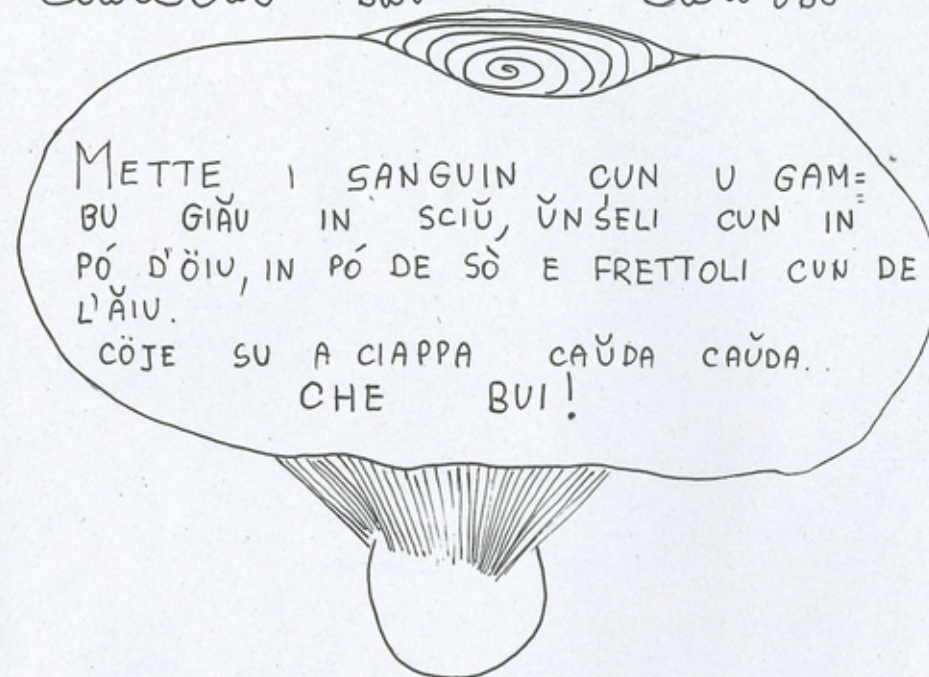 METTE I SANGUIN CUN U GAM=
BU GIĂU IN SCIŬ, ŬNSELI CUN IN
PÓ D'ÖIU, IN PÓ DE SÒ E FRETTOLI CUN DE
L'ĂIU.
CÖJE SU A CIAPPA CAŬDA CAŬDA..
CHE BUI!